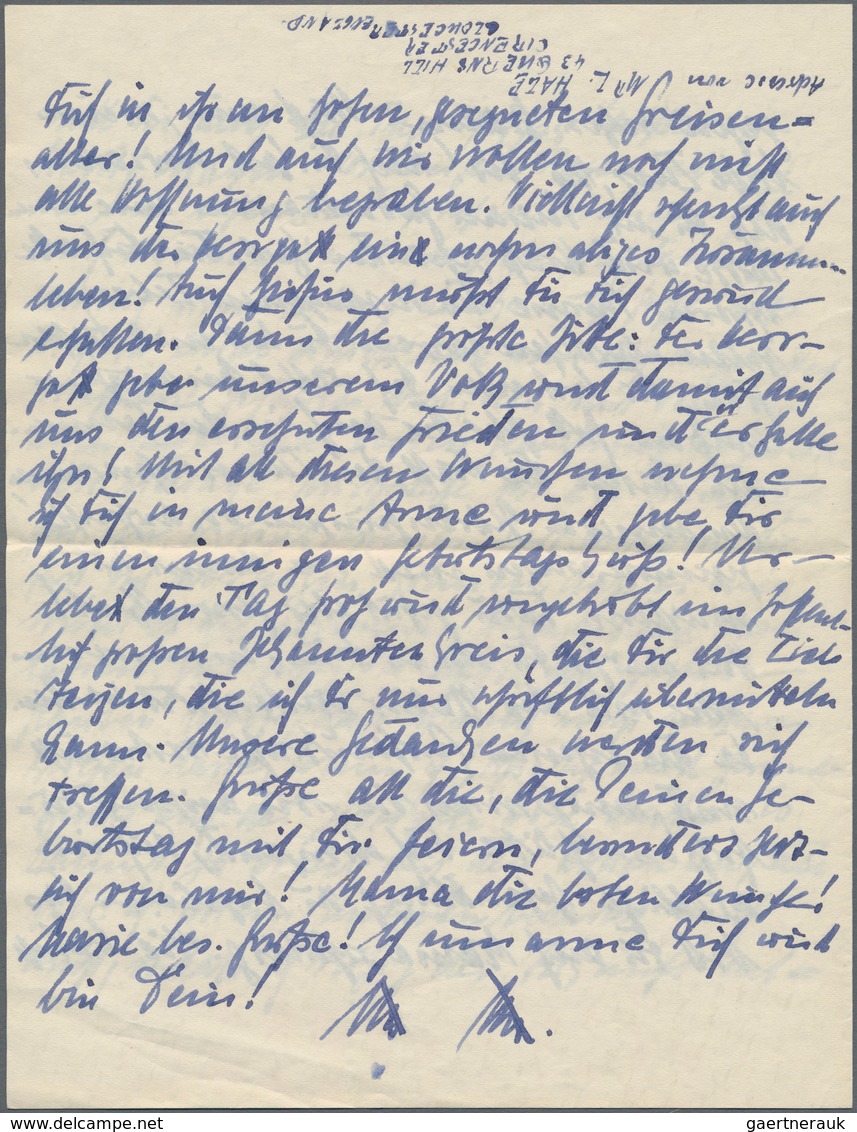 Adresse von Mr L. HALE
43 QUERNS HILL
CIRENCESTER
GLOUCESTER ENGLAND.
Dich in ihrem hohen, gesegneten Greisen=
alter! Und auch wir wollen noch nicht
alle Hoffnung begraben. Vielleicht schenkt auch
uns der Herrgott ein nochmaliges Zusammen-
leben! Auch hiefür mußt Du Dich gesund
erhalten. Dann die größte Bitte: Der Herr-
gott gebe unserem Volk und damit auch
uns den ersehnten Frieden und Er halte
ihn! Mit all diesen Wünschen nehme
ich Dich in meine Arme und gebe Dir
einen innigen Geburtstagskuß! Ver-
lebe den Tag froh und umgeben im hoffent-
lich großen Bekanntenkreis, die Dir die Liebe
zeigen, die ich Dir nur schriftlich übermitteln
kann. Unsere Gedanken werden sich
treffen. Grüße all die, die Deinen Ge-
burtstag mit Dir feiern, besonders herz-
lich von mir! Mama die besten Wünsche!
Marie bes. Grüße! Ich umarme Dich und
bin Dein!
gaertnerauk